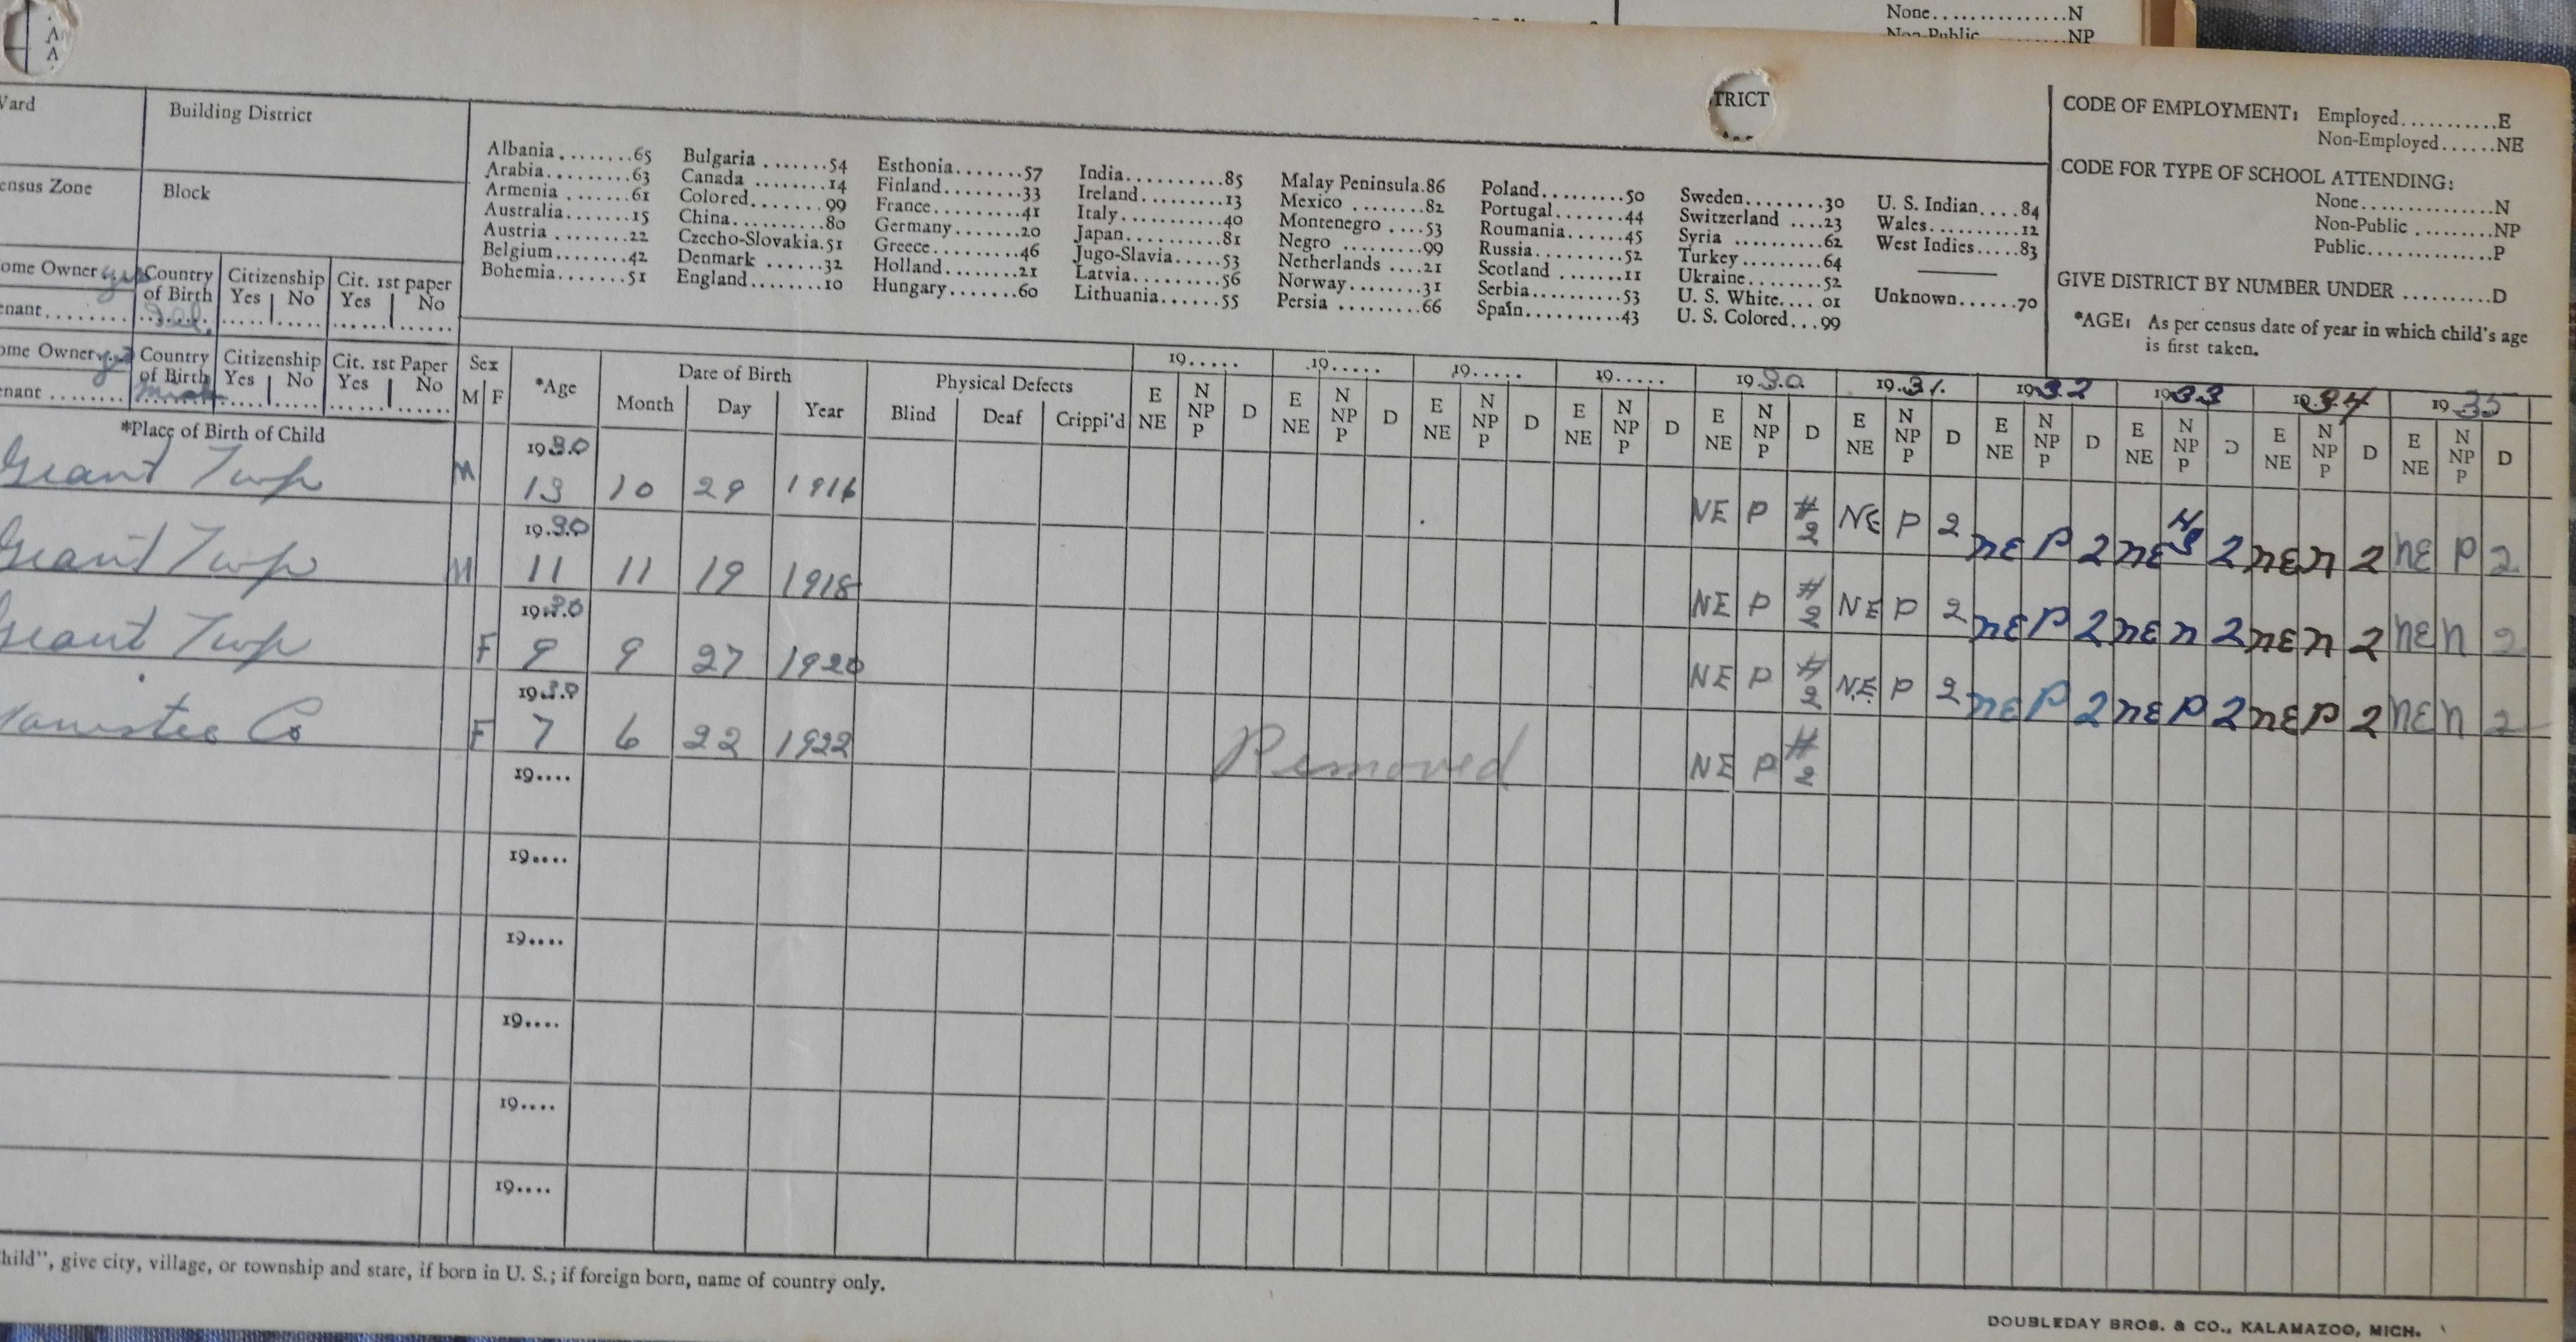 None...............N
Non-Public.........NP
A
A
TRICT
Ward
Building District
Census Zone
Block
CODE OF EMPLOYMENT: Employed...........E
Non-Employed......NE
CODE FOR TYPE OF SCHOOL ATTENDING:
None...............N
Non-Public .........NP
Public..............P
GIVE DISTRICT BY NUMBER UNDER ..........D
*AGE: As per census date of year in which child's age
is first taken.
Albania ........65 Bulgaria .......54 Esthonia.......57 India..........85 Malay Peninsula.86 Poland.........50 Sweden........30 U. S. Indian....84
Arabia.........63 Canada ........14 Finland........33 Ireland.........13 Mexico ........82 Portugal.......44 Switzerland ....23 Wales..........12
Armenia .......61 Colored.......99 France.........41 Italy..........40 Montenegro ....53 Roumania......45 Syria .........62 West Indies.....83
Australia.......15 China..........80 Germany.......20 Japan..........81 Negro .........99 Russia.........52 Turkey.........64
Austria ........22 Czecho-Slovakia.51 Greece.........46 Jugo-Slavia.....53 Netherlands ....21 Scotland .......11 Ukraine........52 Unknown......70
Belgium........42 Denmark ......32 Holland........21 Latvia..........56 Norway........31 Serbia.........53 U. S. White....01
Bohemia.......51 England........10 Hungary.......60 Lithuania......55 Persia .........66 Spain..........43 U. S. Colored...99
ome Owner yes Country of Birth Citizenship Yes No Cit. 1st paper Yes No
enant........
ome Owner yes Country of Birth Mich Citizenship Yes No Cit. 1st Paper Yes No
enant ........
*Place of Birth of Child
Sex M F *Age Date of Birth Month Day Year Physical Defects Blind Deaf Crippl'd
19..... 19..... 19..... 19..... 1930 1931 1932 1933 1934 1935
E NE N NP P D E NE N NP P D E NE N NP P D E NE N NP P D E NE N NP P D E NE N NP P D E NE N NP P D E NE N NP P D E NE N NP P D E NE N NP P D
Grant Twp M 1930 13 10 29 1916 NE P #2 NE P 2 NE P 2 NE HS 2 NE N 2 NE P 2
Grant Twp M 1930 11 11 19 1918 NE P #2 NE P 2 NE P 2 NE N 2 NE N 2 NE N 2
Grant Twp F 1930 9 9 27 1920 NE P #2 NE P 2 NE P 2 NE P 2 NE P 2 NE N 2
Co F 1930 7 6 22 1922 Removed NE P #2
19....
19....
19....
19....
19....
19....
hild", give city, village, or township and state, if born in U. S.; if foreign born, name of country only.
DOUBLEDAY BROS. & CO., KALAMAZOO, MICH.